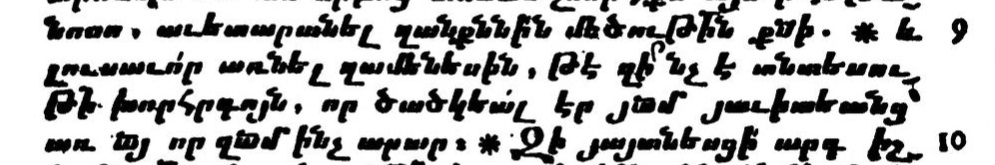 նոսս, աւետարանել զանքննին մեծութիՆ քսի. * և 9
լուսաւոր առնել զամենեսին, թէ զի՞նչ է տնտեսու֊
թի խորհրդոյն, որ ծածկեալ էր յամ յաւիտեանց՝
առ այ որ զամ ինչ արար։ * Զի յայտնեսցի արդ իշ֊ 10